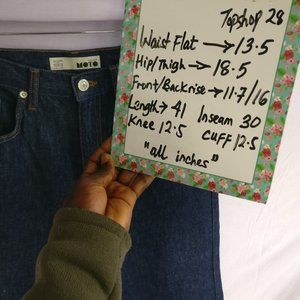 Topshop 28
Waist Flat → 13.5
Hip/Thigh → 18.5
Front/Backrise → 11.7/16
Length → 41 Inseam 30
Knee 12.5 Cuff 12.5
"all inches"
MOTO